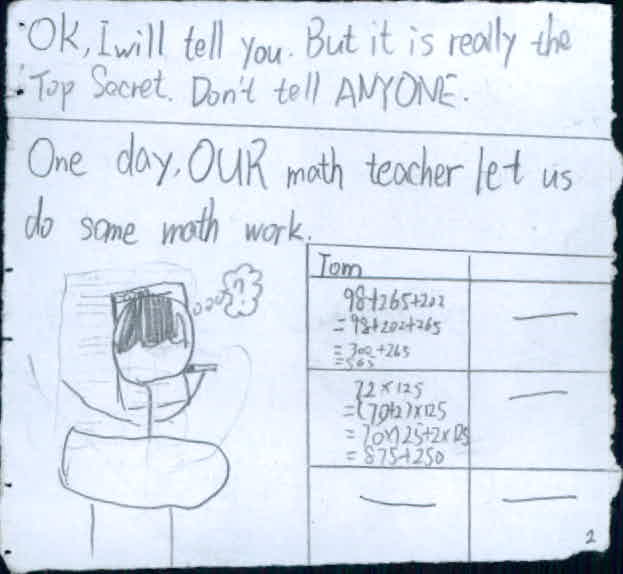 OK, I will tell you. But it is really the
Top Secret. Don't tell ANYONE.
One day, OUR math teacher let us
do some math work.
? ?
Tom
98+265+202
=98+202+265
=300+265
=565
72×125
=(70+2)×125
=70×125+2×125
=875+250
2